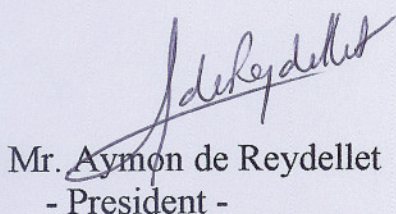 A de Reydellet
Mr. Aymon de Reydellet
- President -